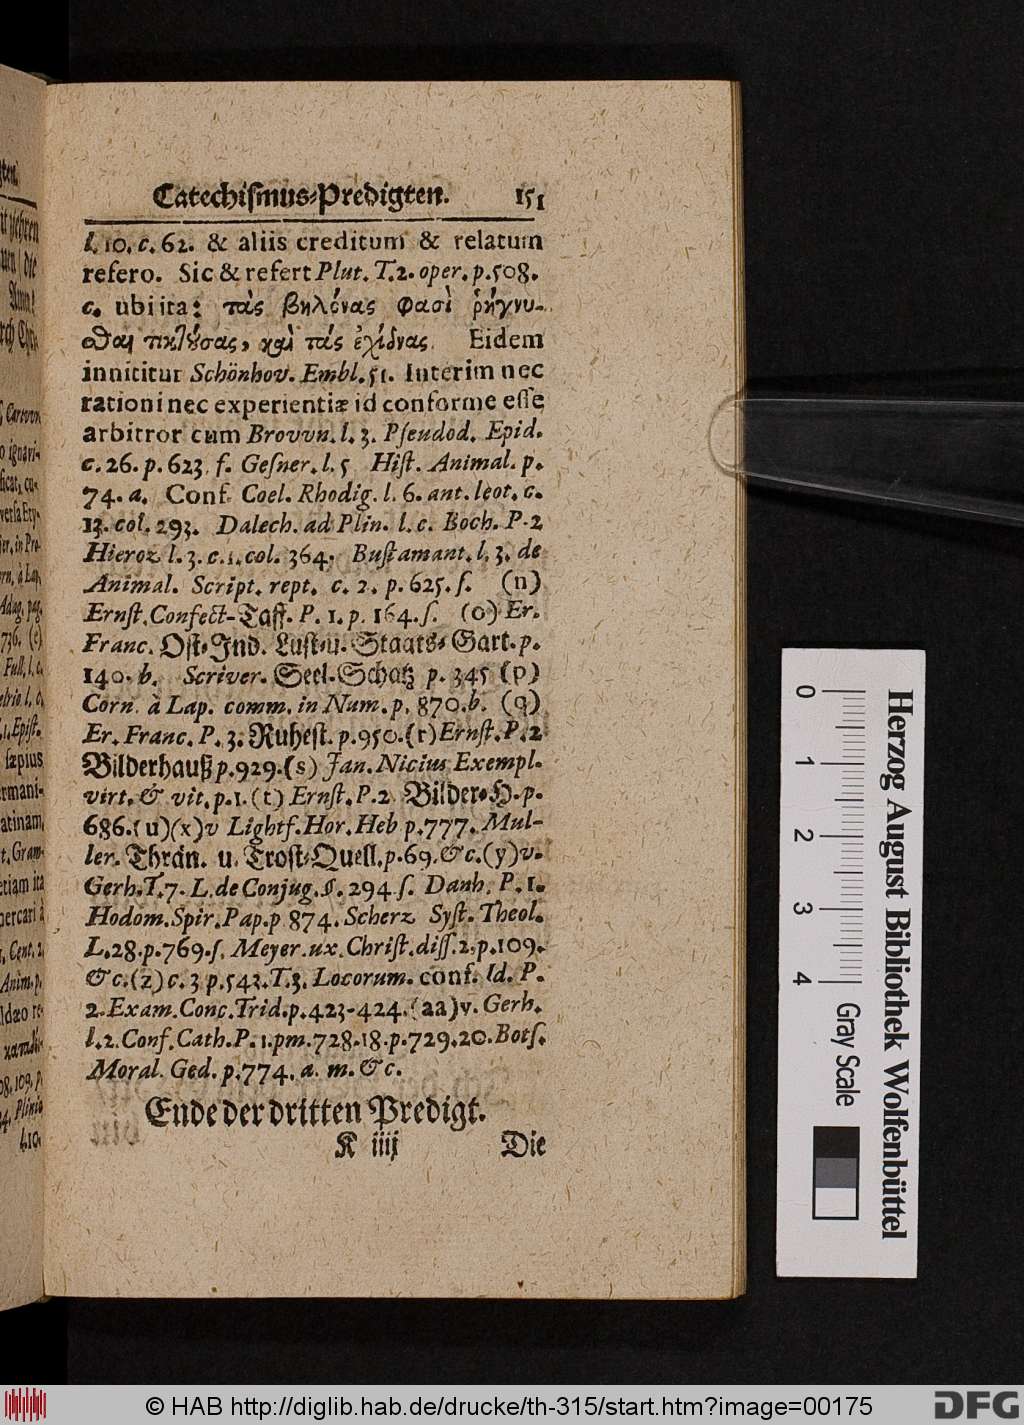 Catechiſmus-Predigten. 151
l. 10. c. 62. & aliis creditum & relatum
refero. Sic & refert Plut. T. 2. oper. p. 508.
c. ubi ita: τὰς φασὶ ῥήγνυ-
σθαι καὶ τὰς ἐχίδνας. Eidem
innititur Schönhov. Embl. 51. Interim nec
rationi nec experientiæ id conforme eſſe
arbitror cum Brovvn. l. 3. Pſeudod. Epid.
c. 26. p. 623. f. Geſner. l. 5 Hiſt. Animal. p.
74. a. Conf. Coel. Rhodig. l. 6. ant. leot. c.
13. col. 293. Dalech. ad Plin. l. c. Boch. P. 2
Hieroz l. 3. c. 1. col. 364. Buſtamant. l. 3. de
Animal. Script. rept. c. 2. p. 625. ſ. (n)
Ernſt. Confect-Taff. P. 1. p. 164. ſ. (o) Er.
Franc. Oſt-Ind. Luſt-u. Staats-Gart. p.
140. b. Scriver. Seel-Schatz p. 345 (p)
Corn. à Lap. comm. in Num. p. 870. b. (q)
Er. Franc. P. 3. Ruheſt. p. 950. (r) Ernſt. P. 2
Bilderhauß p. 929. (s) Jan. Nicius Exempl.
virt. & vit. p. 1. (t) Ernſt. P. 2 Bilder-H. p.
686. (u)(x) v Lightf. Hor. Heb p. 777. Mul-
ler. Thrän. u. Troſt-Quell. p. 69. &c. (y) v.
Gerh. T. 7. L. de Conjug. §. 294 ſ. Danh. P. 1.
Hodom. Spir. Pap. p 874. Scherz Syſt. Theol.
L. 28. p. 769. ſ. Meyer. ux. Chriſt. diſſ. 2. p. 109.
&c. (z) c. 3 p. 543. T. 3. Locorum. conf. Id. P.
2. Exam. Conc. Trid. p. 423-424. (aa) v. Gerh.
l. 2. Conf. Cath. P. 1. pm. 728. 18. p. 729. 20. Botſ.
Moral. Ged. p. 774. a. m. &c.
Ende der dritten Predigt.
K iiij Die
0 1 2 3 4
Herzog August Bibliothek Wolfenbüttel
Gray Scale
© HAB http://diglib.hab.de/drucke/th-315/start.htm?image=00175
DFG